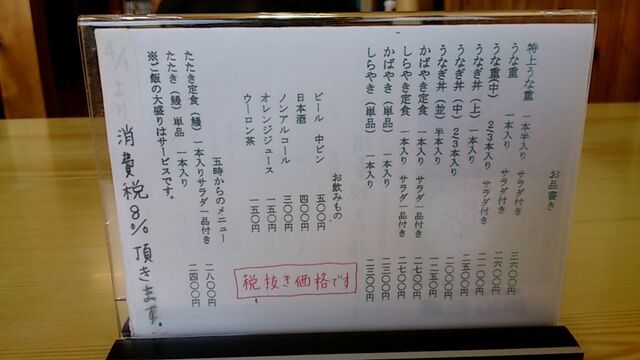 お品書き
特上うな重 一本半入り サラダ付き 三六〇〇円
うな重 一本入り サラダ付き 二六〇〇円
うな重(中) 2/3本入り サラダ付き 二一〇〇円
うなぎ丼(上) 一本入り 二五〇〇円
うなぎ丼(中) 2/3本入り 二〇〇〇円
うなぎ丼(並) 半本入り 一五〇〇円
かばやき定食 一本入り サラダ一品付き 二七〇〇円
しらやき定食 一本入り サラダ一品付き 二七〇〇円
かばやき(単品) 一本入り 二三〇〇円
しらやき(単品) 一本入り 二三〇〇円
税抜き価格です
お飲みもの
ビール 中ビン 五〇〇円
日本酒 四〇〇円
ノンアルコール 三〇〇円
オレンジジュース 一五〇円
ウーロン茶 一五〇円
五時からのメニュー
たたき定食(鰻) 一本入りサラダ一品付き 二八〇〇円
たたき(鰻)単品 一本入り 二四〇〇円
※ご飯の大盛りはサービスです。
4/1より
消費税8%頂きます。